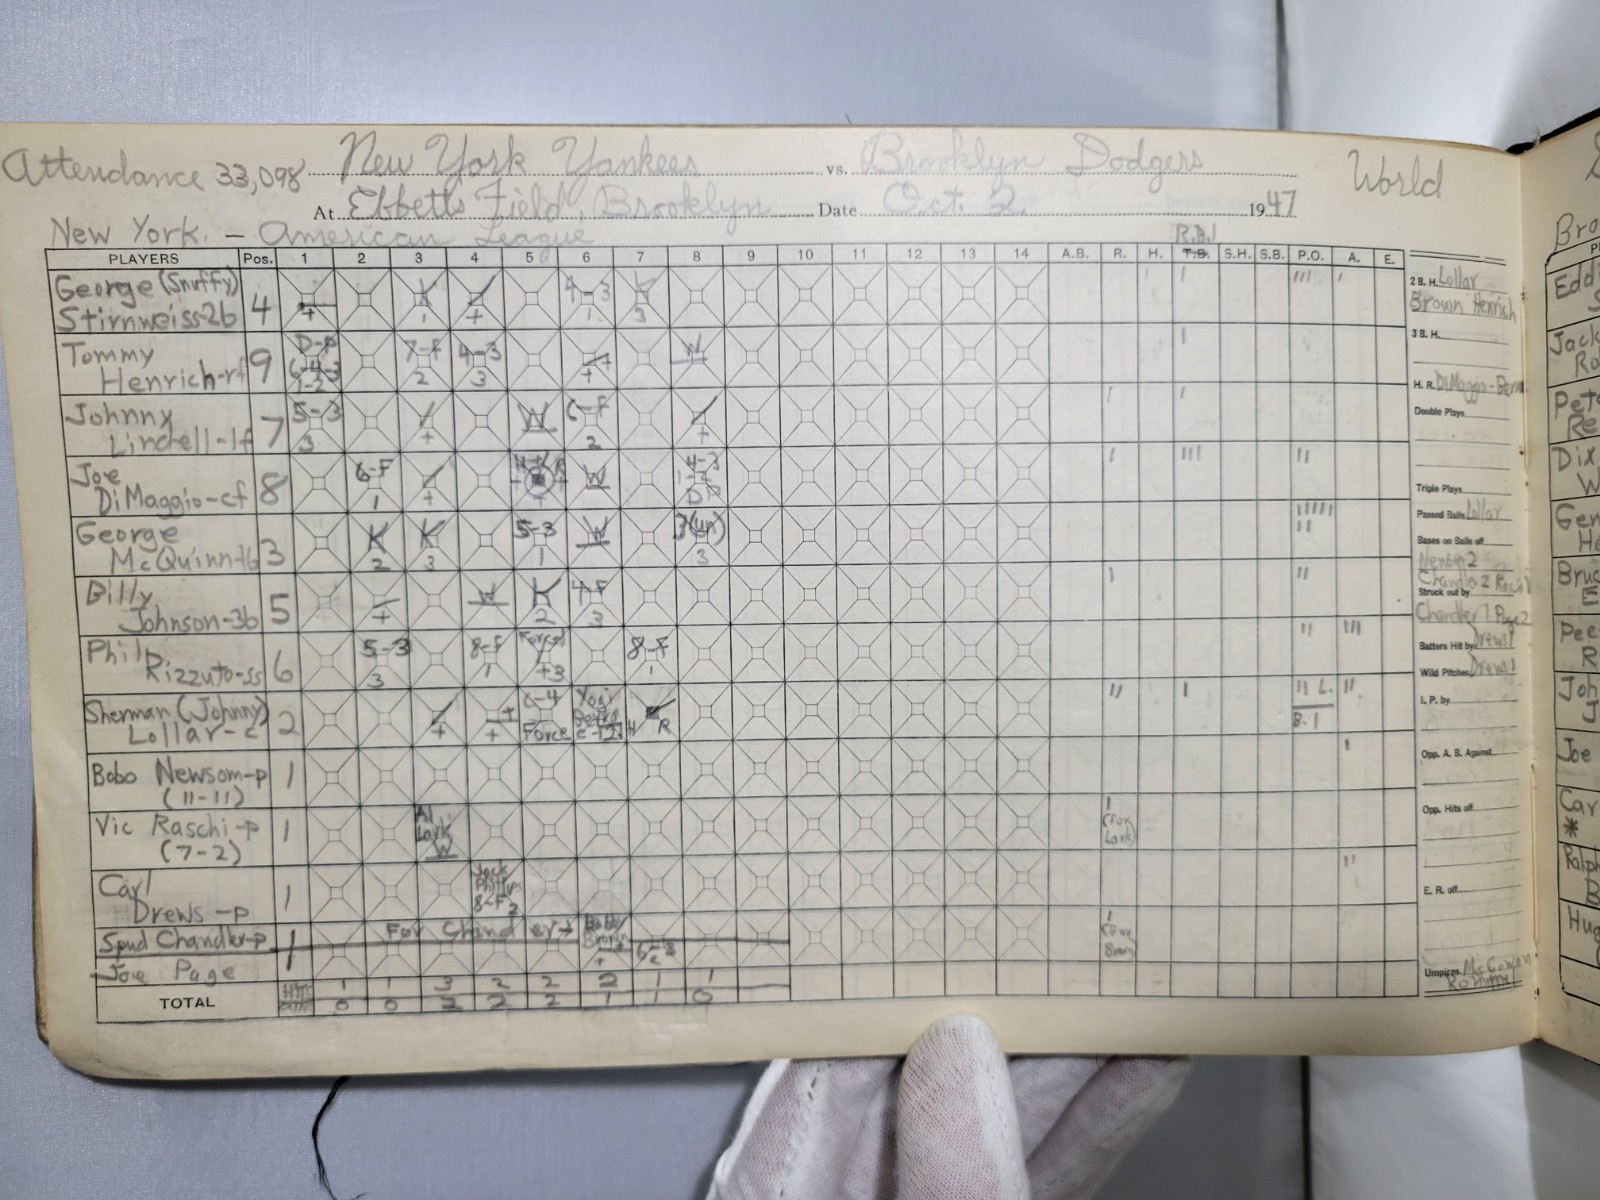 Attendance 33,098 New York Yankees vs. Brooklyn Dodgers World
At Ebbetts Field, Brooklyn Date Oct. 2. 1947
New York. - American League R.B.I
PLAYERS Pos. 1 2 3 4 5 6 7 8 9 10 11 12 13 14 A.B. R. H. T.B. S.H. S.B. P.O. A. E.
George (Snuffy)
Stirnweiss-2b 4 4-3
2 B. H. Lollar
Brown Henrich
3 B. H.
Tommy D-P 7-F 4-3 W
Henrich-rf 9 6-4-3 1-2 2 3
H. R. DiMaggio-Berra
Johnny 5-3 W 6-F
Lindell-lf 7 3 2
Double Plays
Joe 6-F W 4-3
DiMaggio-cf 8 1 1-2 DP
Triple Plays
George K K 5-3 W 3(un)
McQuinn-1b 3 2 3 1 3
Passed Balls Lollar
Bases on Balls off
Newsom 2
Chandler 2 Raschi 1
Struck out by
Chandler 1 Page 2
Billy W K 4-F
Johnson-3b 5 2 3
Batters Hit by Drews 1
Phil 5-3 8-F Forced 8-F
Rizzuto-ss 6 3 1 1
Wild Pitches Drews 1
Sherman (Johnny) 6-4 Yogi
Lollar-c 2 Force Berra c-12 H R
L.
B. 1
I. P. by
Opp. A. B. Against
Bobo Newsom-p 1
(11-11)
Opp. Hits off
Vic Raschi-p 1 Al 1
(7-2) Lark W (for Lark)
Carl Jack
Drews-p 1 Phillips 8-F 2
E. R. off
Spud Chandler-p 1 For Chandler → Bobby Brown 1 (for Brown)
Joe Page
Hits 1 1 3 2 2 2 1 1
TOTAL 0 0 2 2 2 1 1 0
Umpires McGowan
Rommel
Bro
Edd
Jack
Ro
Pet
Re
Dix
W
Gen
He
Bruc
E
Pee
R
Joh
J
Joe
Car
*
Ralph
B
Hug